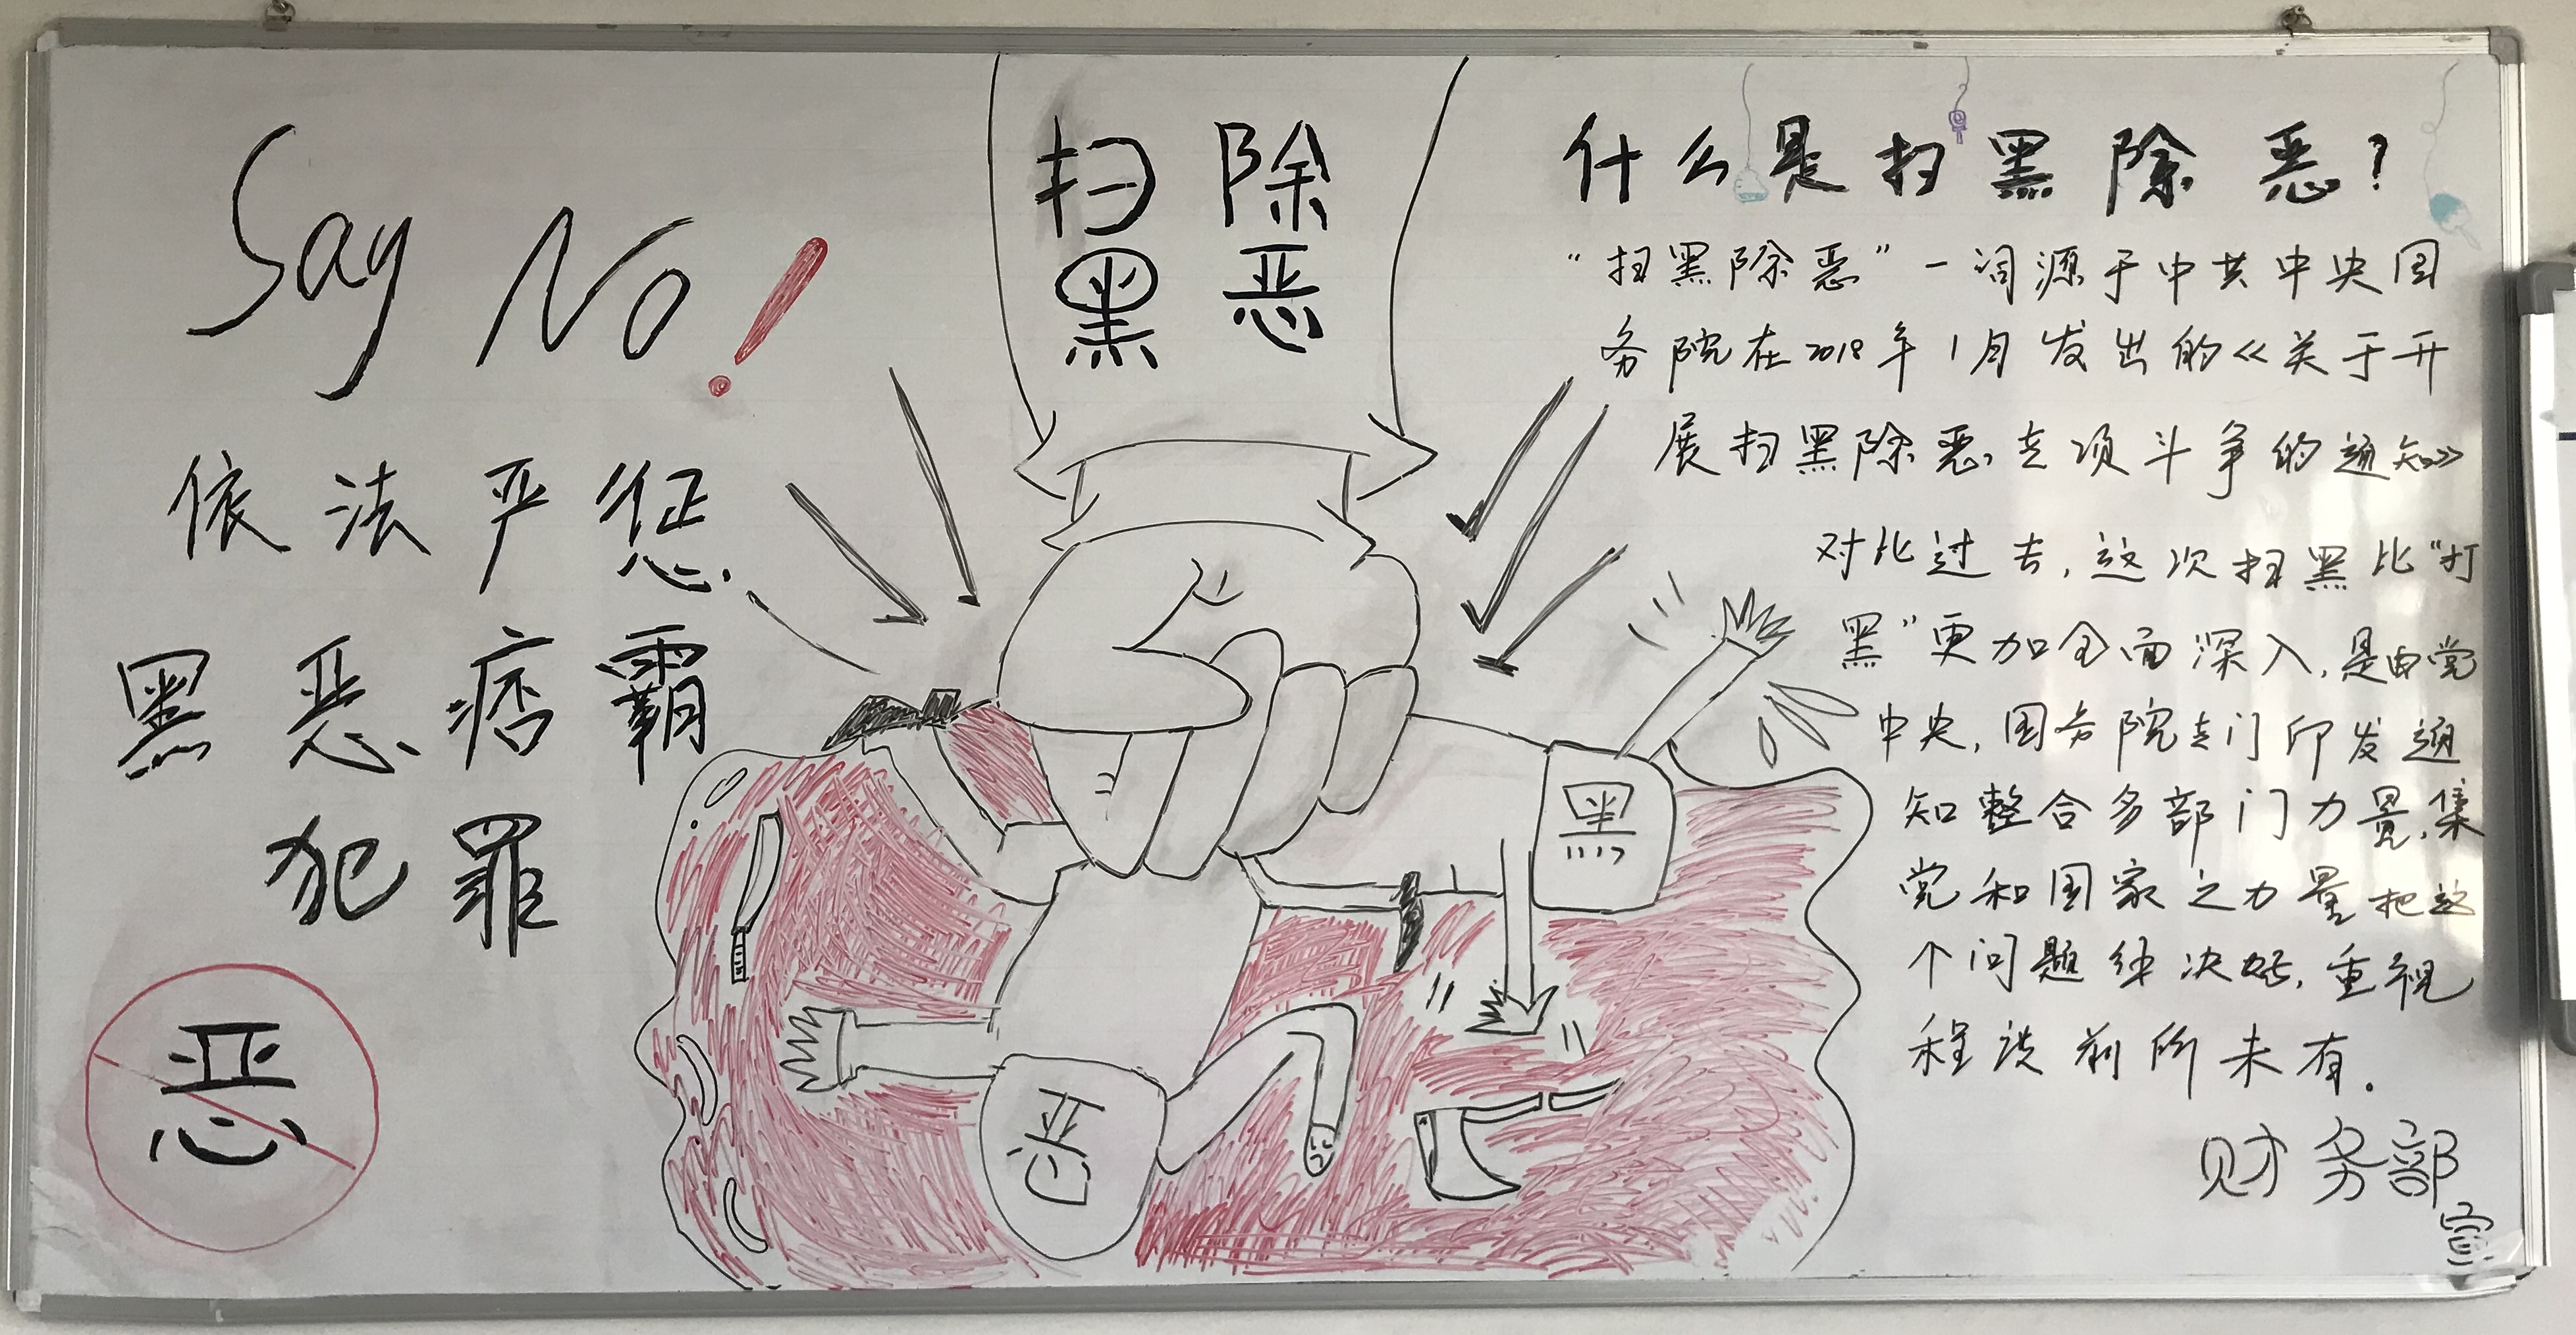 Say No!
依法严惩
黑恶痞霸
犯罪
恶
扫除
黑恶
黑
恶
什么是扫黑除恶?
“扫黑除恶”一词源于中共中央国
务院在2018年1月发出的《关于开
展扫黑除恶专项斗争的通知》
对比过去,这次扫黑比“打
黑”更加全面深入,是由党
中央,国务院专门印发通
知整合多部门力量,集
党和国家之力量把这
个问题解决好,重视
程度前所未有.
财务部
宣